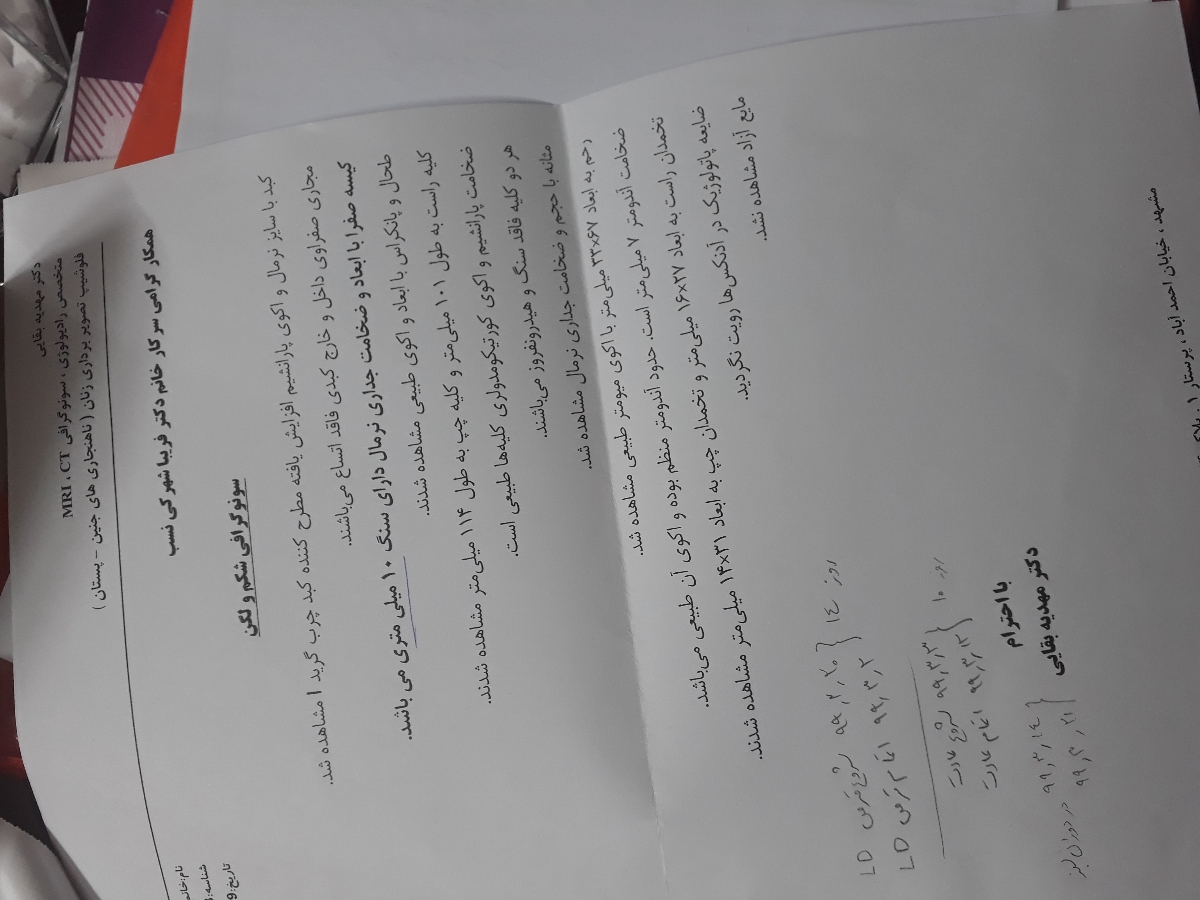 دکتر مهدیه بقایی
متخصص رادیولوژی ، سونوگرافی MRI ، CT
فلوشیپ تصویر برداری زنان ( ناهنجاری های جنین - پستان )
نام:خانم
شناسه:
تاریخ:
همکار گرامی سرکار خانم دکتر فریبا شهرکی نسب
سونوگرافی شکم و لگن
کبد با سایز نرمال و اکوی پارانشیم افزایش یافته مطرح کننده کبد چرب گرید I مشاهده شد.
مجاری صفراوی داخل و خارج کبدی فاقد اتساع می‌باشند.
کیسه صفرا با ابعاد و ضخامت جداری نرمال دارای سنگ ۱۰ میلی متری می باشد.
طحال و پانکراس با ابعاد و اکوی طبیعی مشاهده شدند.
کلیه راست به طول ۱۰۱ میلی‌متر و کلیه چپ به طول ۱۱۴ میلی‌متر مشاهده شدند.
ضخامت پارانشیم و اکوی کورتیکومدولری کلیه‌ها طبیعی است.
هر دو کلیه فاقد سنگ و هیدرونفروز می‌باشند.
مثانه با حجم و ضخامت جداری نرمال مشاهده شد.
رحم به ابعاد ۶۷×۳۳ میلی‌متر با اکوی میومتر طبیعی مشاهده شد.
ضخامت آندومتر ۷ میلی‌متر است. حدود آندومتر منظم بوده و اکوی آن طبیعی می‌باشد.
تخمدان راست به ابعاد ۲۷×۱۶ میلی‌متر و تخمدان چپ به ابعاد ۳۱×۱۴ میلی‌متر مشاهده شدند.
ضایعه پاتولوژیک در آدنکس‌ها رویت نگردید.
مایع آزاد مشاهده نشد.
شروع قرص LD ۹۹,۲,۲۰ } ۱۴ روز
اتمام قرص LD ۹۹,۳,۲
شروع عادت ۹۹,۳,۳ } ۱۰ روز
اتمام عادت ۹۹,۳,۱۲
با احترام
دکتر مهدیه بقایی
۹۹,۳,۱۴ }
۹۹,۳,۲۱
مشهد ، خیابان احمد آباد ، پرستار ۱ ، پلاک